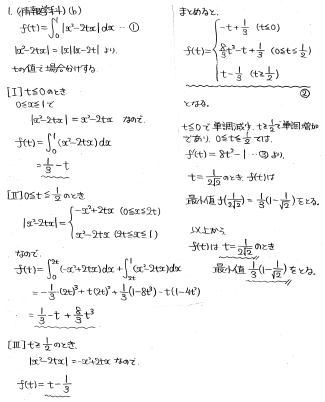 1. (情報学科)(b)
f(t)=∫₀¹|x²-2tx|dx …①
|x²-2tx|=|x||x-2t| より、
tの値で場合分けする。
[I] t≤0 のとき
0≤x≤1 で
|x²-2tx|=x²-2tx なので、
f(t)=∫₀¹(x²-2tx)dx
=1/3-t
[II] 0≤t≤1/2 のとき
|x²-2tx|={-x²+2tx (0≤x≤2t)
x²-2tx (2t≤x≤1)
なので、
f(t)=∫₀²ᵗ(-x²+2tx)dx+∫₂ₜ¹(x²-2tx)dx
=-1/3(2t)³+t(2t)²+1/3(1-8t³)-t(1-4t²)
=1/3-t+8/3t³
[III] t≥1/2 のとき、
|x²-2tx|=-x²+2tx なので、
f(t)=t-1/3
まとめると、
f(t)={-t+1/3 (t≤0)
8/3t³-t+1/3 (0≤t≤1/2)
t-1/3 (t≥1/2)
②
となる。
t≤0で単調減少、t≥1/2で単調増加
であり、0≤t≤1/2では、
f'(t)=8t²-1 …③ より、
t=1/2√2 のとき f(t)は
最小値 f(1/2√2)=1/3(1-1/√2)をとる。
以上から、
f(t)は t=1/2√2 のとき
最小値 1/3(1-1/√2)をとる。